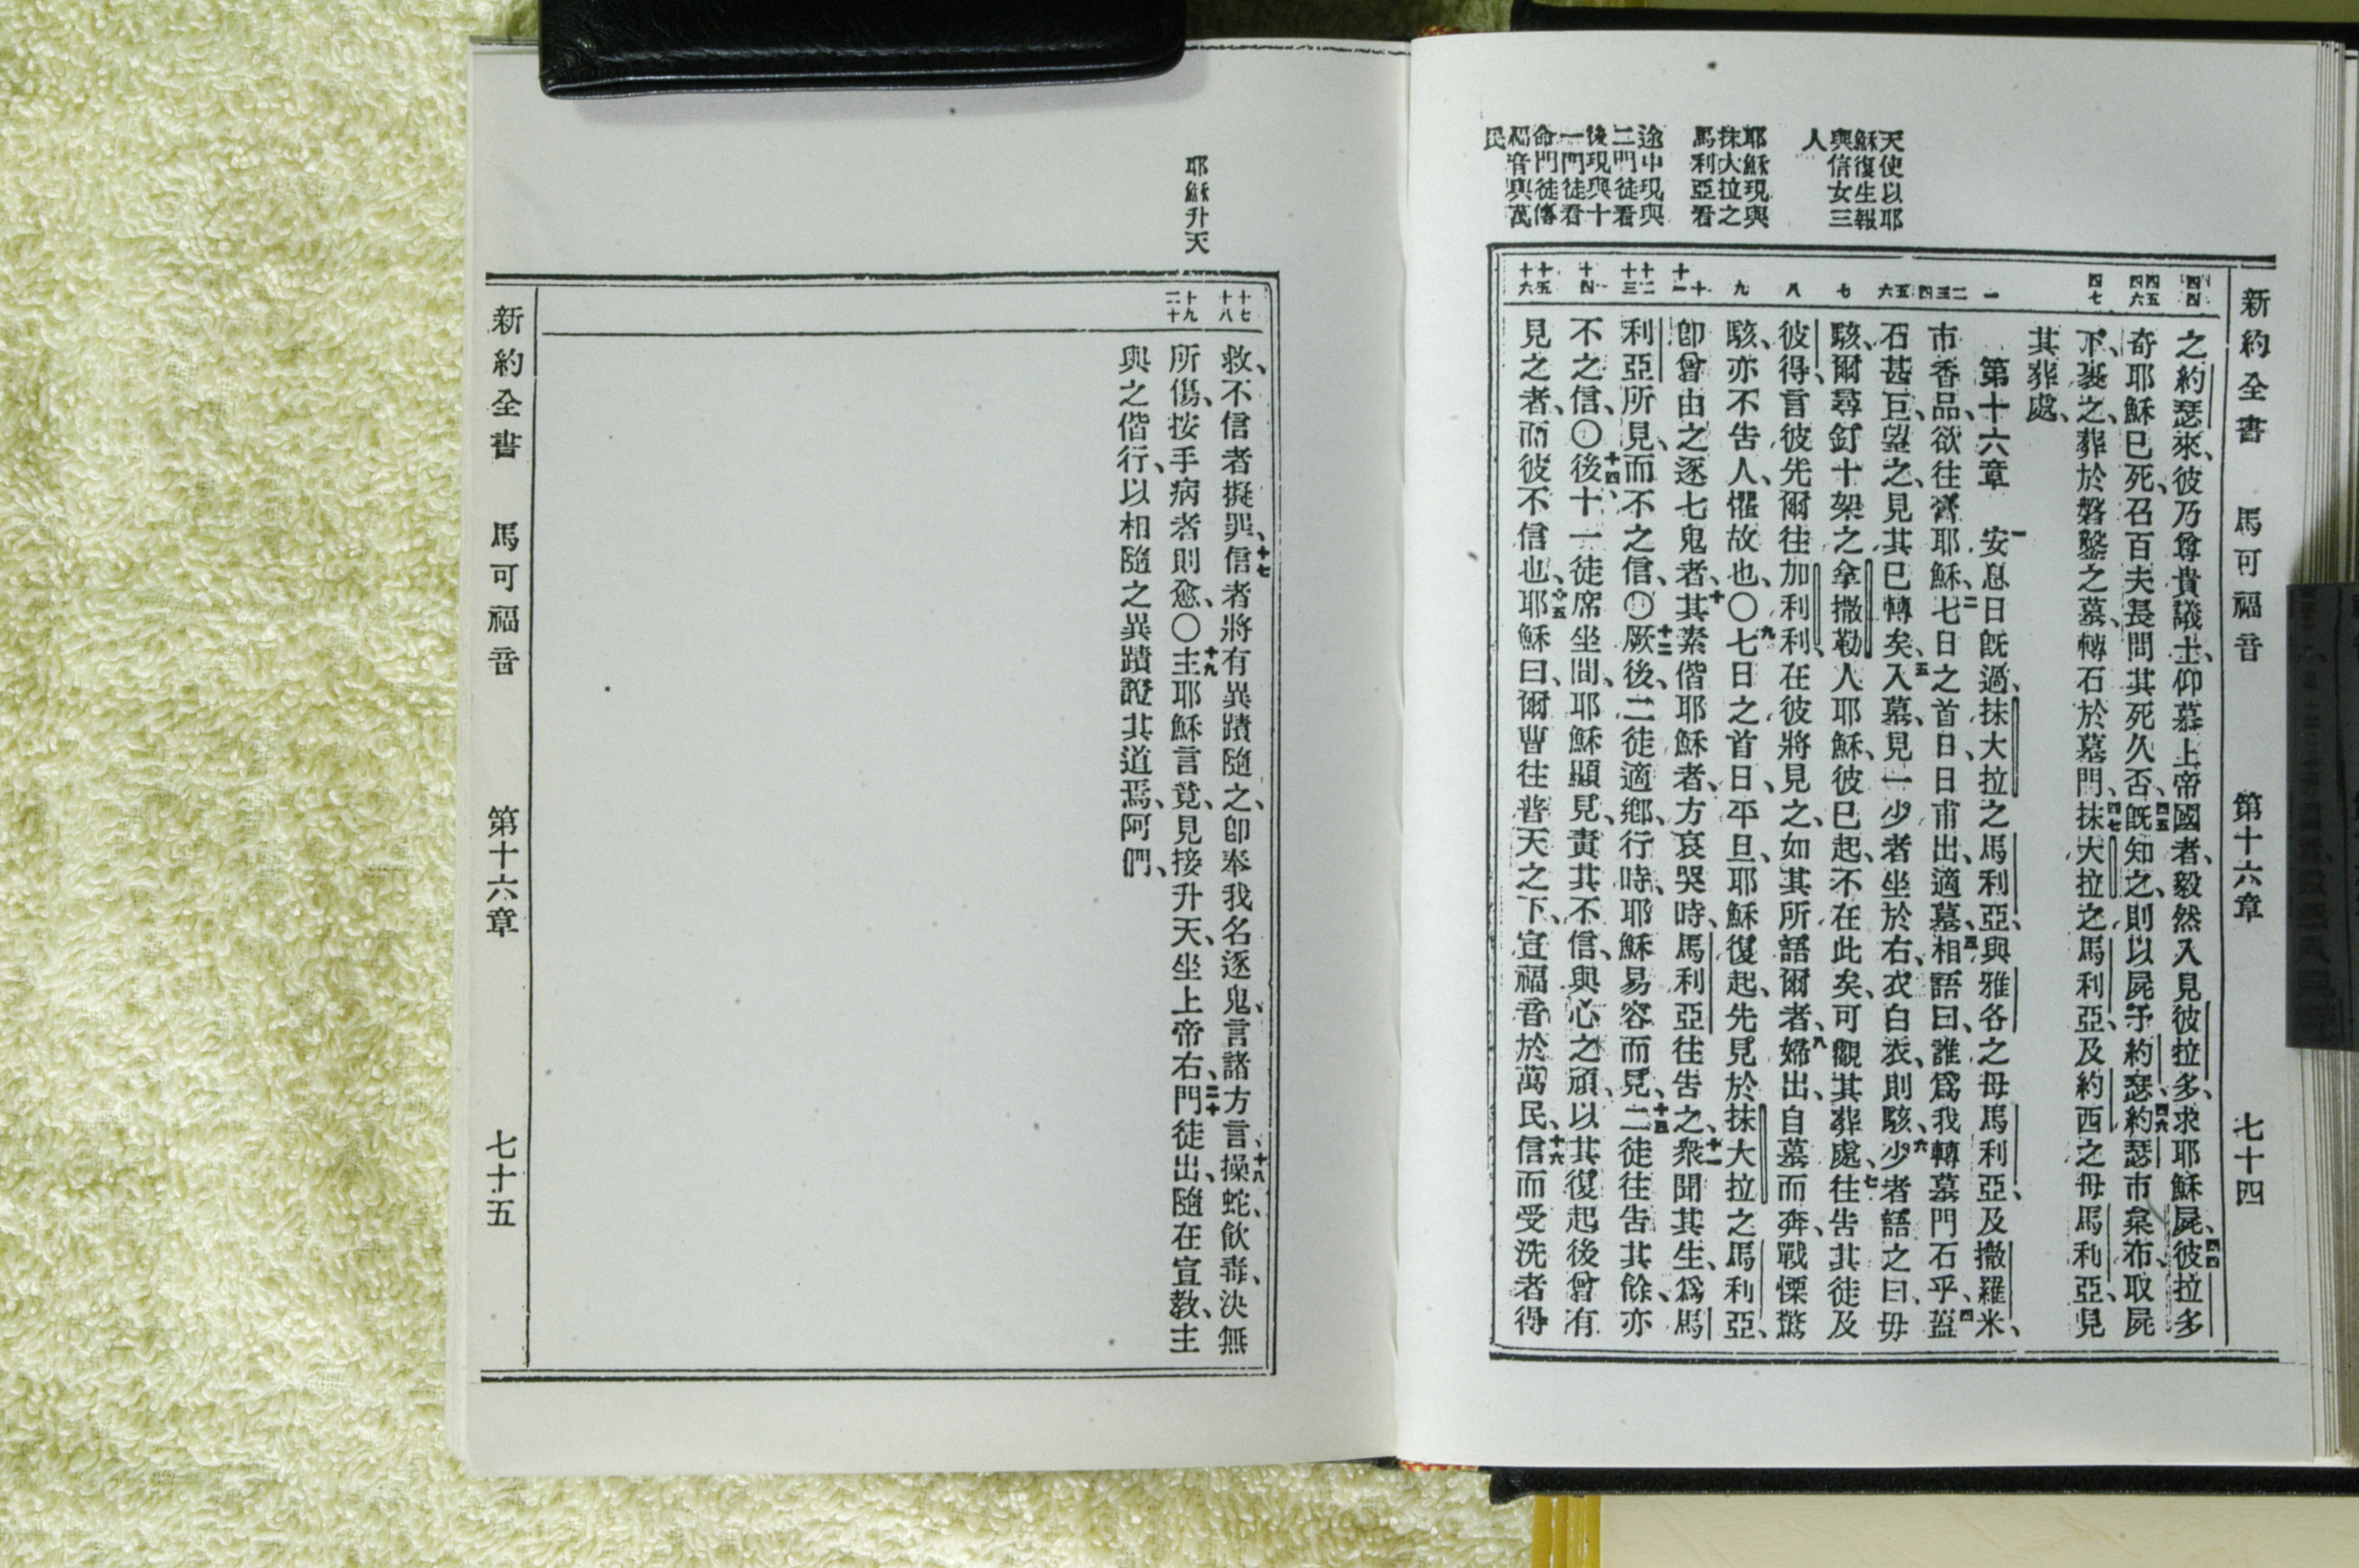 新約全書 馬可福音 第十六章 七十四
天使以耶
穌復生報
與信女三
人
耶穌現與
抹大拉之
馬利亞看
途中現與
二門徒看
後現與十
一門徒看
命門徒傳
福音與萬
民
四四
四五
四六
四七
一
二
三
四
五
六
七
八
九
十
十一
十二
十三
十四
十五
十六
之約瑟來、彼乃尊貴議士、仰慕上帝國者、毅然入見彼拉多、求耶穌屍、四四彼拉多
奇耶穌已死、召百夫長問其死久否、四五旣知之、則以屍予約瑟、四六約瑟市枲布、取屍
下、裹之、葬於磐鑿之墓、轉石於墓門、四七抹大拉之馬利亞、及約西之母馬利亞、見
其葬處、
第十六章 一安息日旣過、抹大拉之馬利亞、與雅各之母馬利亞、及撒羅米、
市香品、欲往膏耶穌、二七日之首日、日甫出、適墓、三相語曰、誰爲我轉墓門石乎、四蓋
石甚巨、望之、見其已轉矣、五入墓、見一少者坐於右、衣白衣、則駭、六少者語之曰、毋
駭、爾尋釘十架之拿撒勒人耶穌、彼已起、不在此矣、可觀其葬處、七往告其徒及
彼得、言彼先爾往加利利、在彼將見之、如其所語爾者、八婦出、自墓而奔、戰慄驚
駭、亦不告人、懼故也、〇九七日之首日、平旦、耶穌復起、先見於抹大拉之馬利亞、
卽曾由之逐七鬼者、十其素偕耶穌者、方哀哭時、馬利亞往告之、十一衆聞其生、爲馬
利亞所見、而不之信、〇十二厥後、二徒適鄉、行時、耶穌易容而見、十三二徒往告其餘、亦
不之信、〇十四後十一徒席坐間、耶穌顯見、責其不信、與心之頑、以其復起後曾有
見之者、而彼不信也、十五耶穌曰、爾曹往普天之下、宣福音於萬民、十六信而受洗者得
耶穌升天
十七
十八
十九
二十
救、不信者擬罪、十七信者將有異蹟隨之、卽奉我名逐鬼、言諸方言、十八操蛇、飲毒、決無
所傷、按手病者則愈、〇十九主耶穌言竟、見接升天、坐上帝右、二十門徒出、隨在宣教、主
與之偕行、以相隨之異蹟證其道焉、阿們、
新約全書 馬可福音 第十六章 七十五